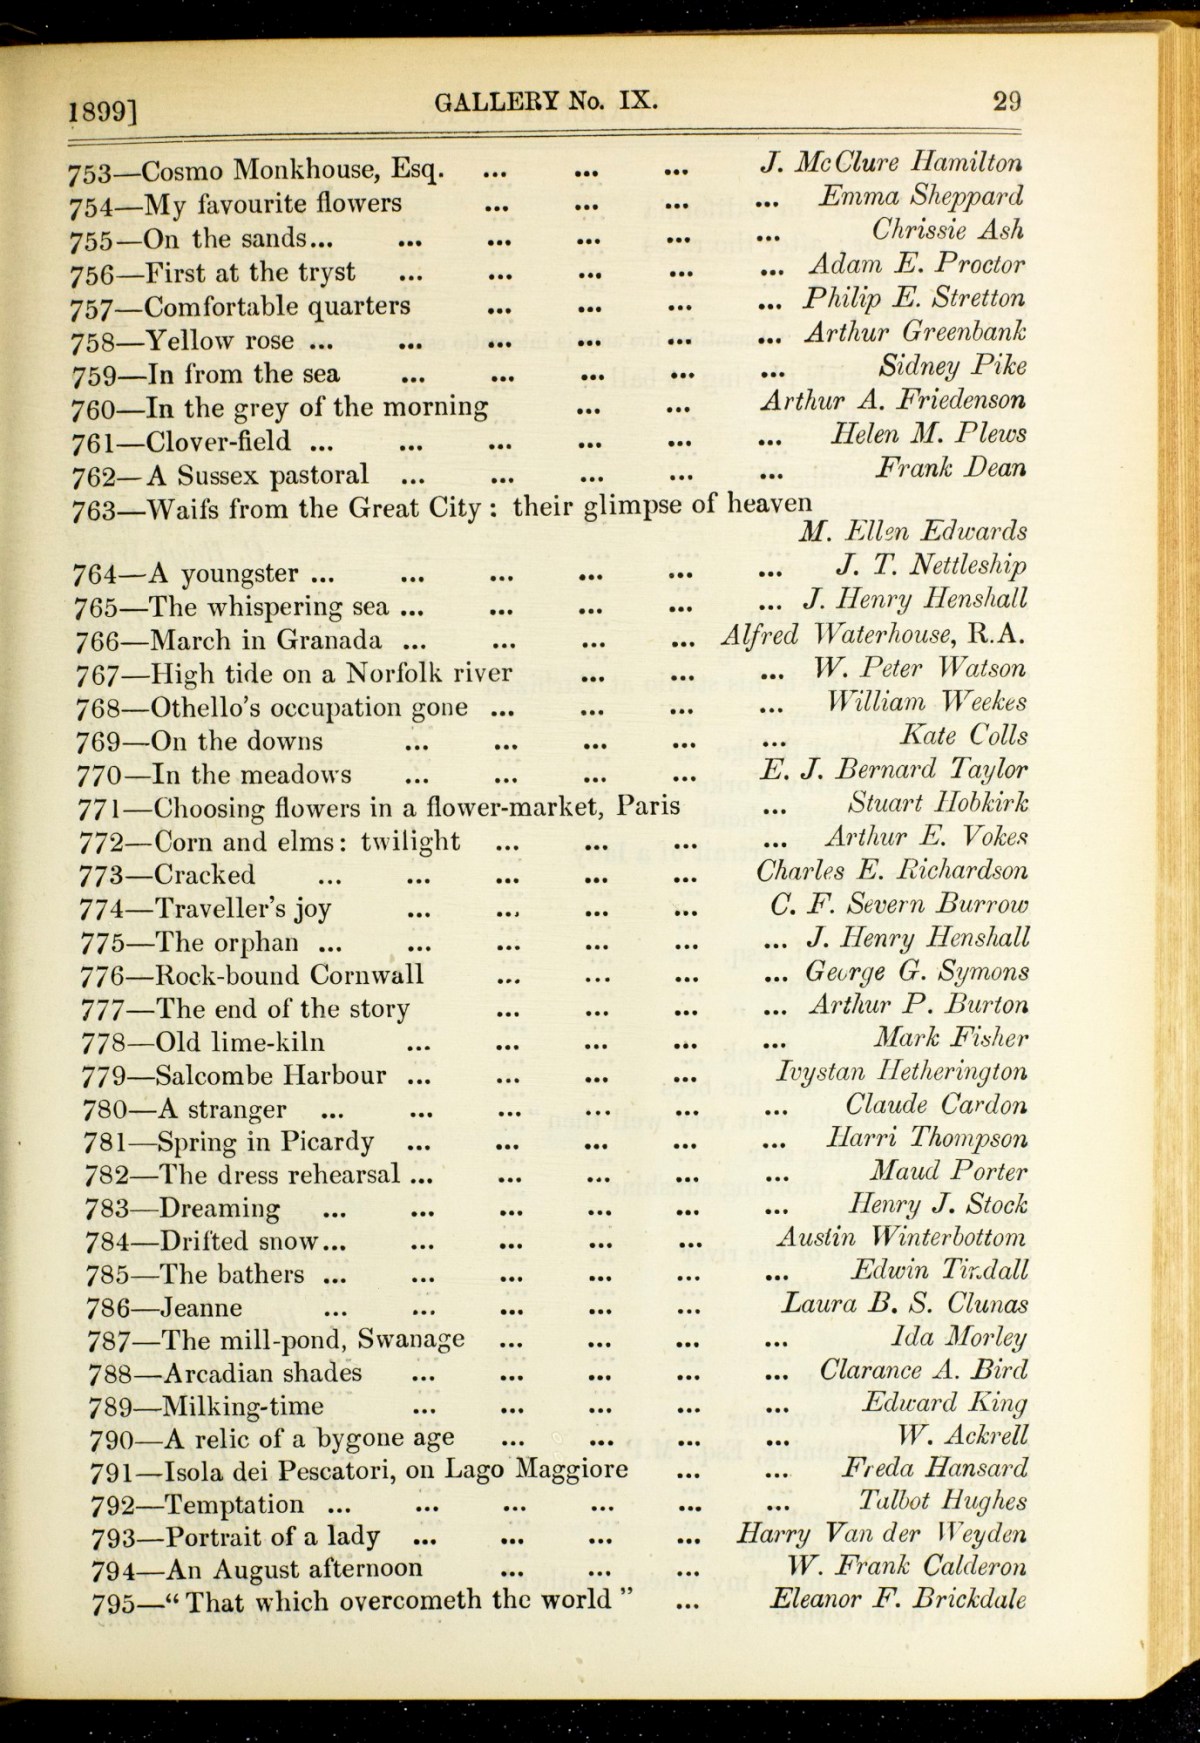 1899] GALLERY No. IX. 29
753—Cosmo Monkhouse, Esq. ... ... ... J. McClure Hamilton
754—My favourite flowers ... ... ... ... Emma Sheppard
755—On the sands... ... ... ... ... ... Chrissie Ash
756—First at the tryst ... ... ... ... ... Adam E. Proctor
757—Comfortable quarters ... ... ... ... Philip E. Stretton
758—Yellow rose ... ... ... ... ... ... Arthur Greenbank
759—In from the sea ... ... ... ... ... Sidney Pike
760—In the grey of the morning ... ... Arthur A. Friedenson
761—Clover-field ... ... ... ... ... ... Helen M. Plews
762—A Sussex pastoral ... ... ... ... ... Frank Dean
763—Waifs from the Great City: their glimpse of heaven
M. Ellen Edwards
764—A youngster ... ... ... ... ... ... J. T. Nettleship
765—The whispering sea ... ... ... ... ... J. Henry Henshall
766—March in Granada ... ... ... ... Alfred Waterhouse, R.A.
767—High tide on a Norfolk river ... ... ... W. Peter Watson
768—Othello's occupation gone ... ... ... ... William Weekes
769—On the downs ... ... ... ... ... Kate Colls
770—In the meadows ... ... ... ... E. J. Bernard Taylor
771—Choosing flowers in a flower-market, Paris ... Stuart Hobkirk
772—Corn and elms: twilight ... ... ... ... Arthur E. Vokes
773—Cracked ... ... ... ... ... Charles E. Richardson
774—Traveller's joy ... ... ... ... C. F. Severn Burrow
775—The orphan ... ... ... ... ... ... J. Henry Henshall
776—Rock-bound Cornwall ... ... ... ... George G. Symons
777—The end of the story ... ... ... ... Arthur P. Burton
778—Old lime-kiln ... ... ... ... ... Mark Fisher
779—Salcombe Harbour ... ... ... ... Ivystan Hetherington
780—A stranger ... ... ... ... ... ... Claude Cardon
781—Spring in Picardy ... ... ... ... ... Harri Thompson
782—The dress rehearsal ... ... ... ... ... Maud Porter
783—Dreaming ... ... ... ... ... ... Henry J. Stock
784—Drifted snow... ... ... ... ... Austin Winterbottom
785—The bathers ... ... ... ... ... ... Edwin Tindall
786—Jeanne ... ... ... ... ... Laura B. S. Clunas
787—The mill-pond, Swanage ... ... ... ... Ida Morley
788—Arcadian shades ... ... ... ... ... Clarance A. Bird
789—Milking-time ... ... ... ... ... Edward King
790—A relic of a bygone age ... ... ... ... W. Ackrell
791—Isola dei Pescatori, on Lago Maggiore ... ... Freda Hansard
792—Temptation ... ... ... ... ... ... Talbot Hughes
793—Portrait of a lady ... ... ... ... Harry Van der Weyden
794—An August afternoon ... ... ... W. Frank Calderon
795—" That which overcometh the world " ... Eleanor F. Brickdale